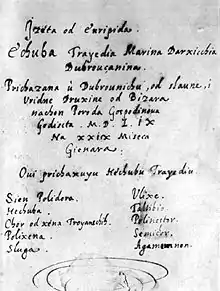 Izeta od Euripida.
Echuba Tragedija Marina Darxichia
Dubroučanina.
Prichazana ù Dubrounichu, od slaune, i
Uridne Druxine od Bizara
nachon Poroda Gospodinoua
Godiscta. M. D. L IX
Na XXIX Miseca
Gienara.
Oui prichaxuyu Hechubu Tragediu.
Sien Polidora.
Hechuba.
Chor od xena Troyanschih.
Polixena.
Sluga.
Ulixe.
Taltibio.
Polinestor.
Semicor.
Agamemnon.